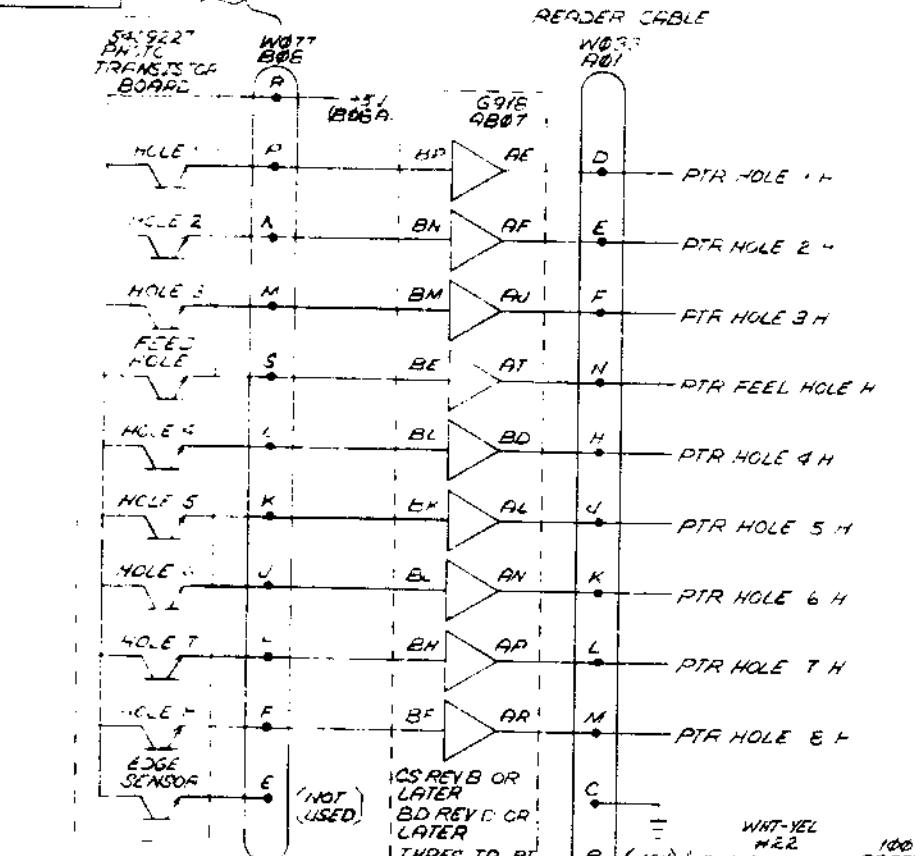 READER CABLE
PHOTO
TRANSISTOR
BOARD
WØ77
BØ8
WØ33
AØ1
R
+5V
BØ8A
G918
ABØ7
HOLE
P
BP
AE
D
PTR HOLE 1 H
HOLE 2
N
BN
AF
E
PTR HOLE 2 H
HOLE 3
M
BM
AJ
F
PTR HOLE 3 H
FEED
HOLE
S
BE
AT
N
PTR FEED HOLE H
HOLE 4
L
BL
BD
H
PTR HOLE 4 H
HOLE 5
K
BK
AL
J
PTR HOLE 5 H
HOLE
J
AN
K
PTR HOLE 6 H
HOLE 7
BH
AP
L
PTR HOLE 7 H
HOLE
F
BF
AR
M
PTR HOLE 8 H
EDGE
SENSOR
E
(NOT
USED)
CS REV B OR
LATER
BD REV D OR
LATER
C
WHT-YEL
#22
100